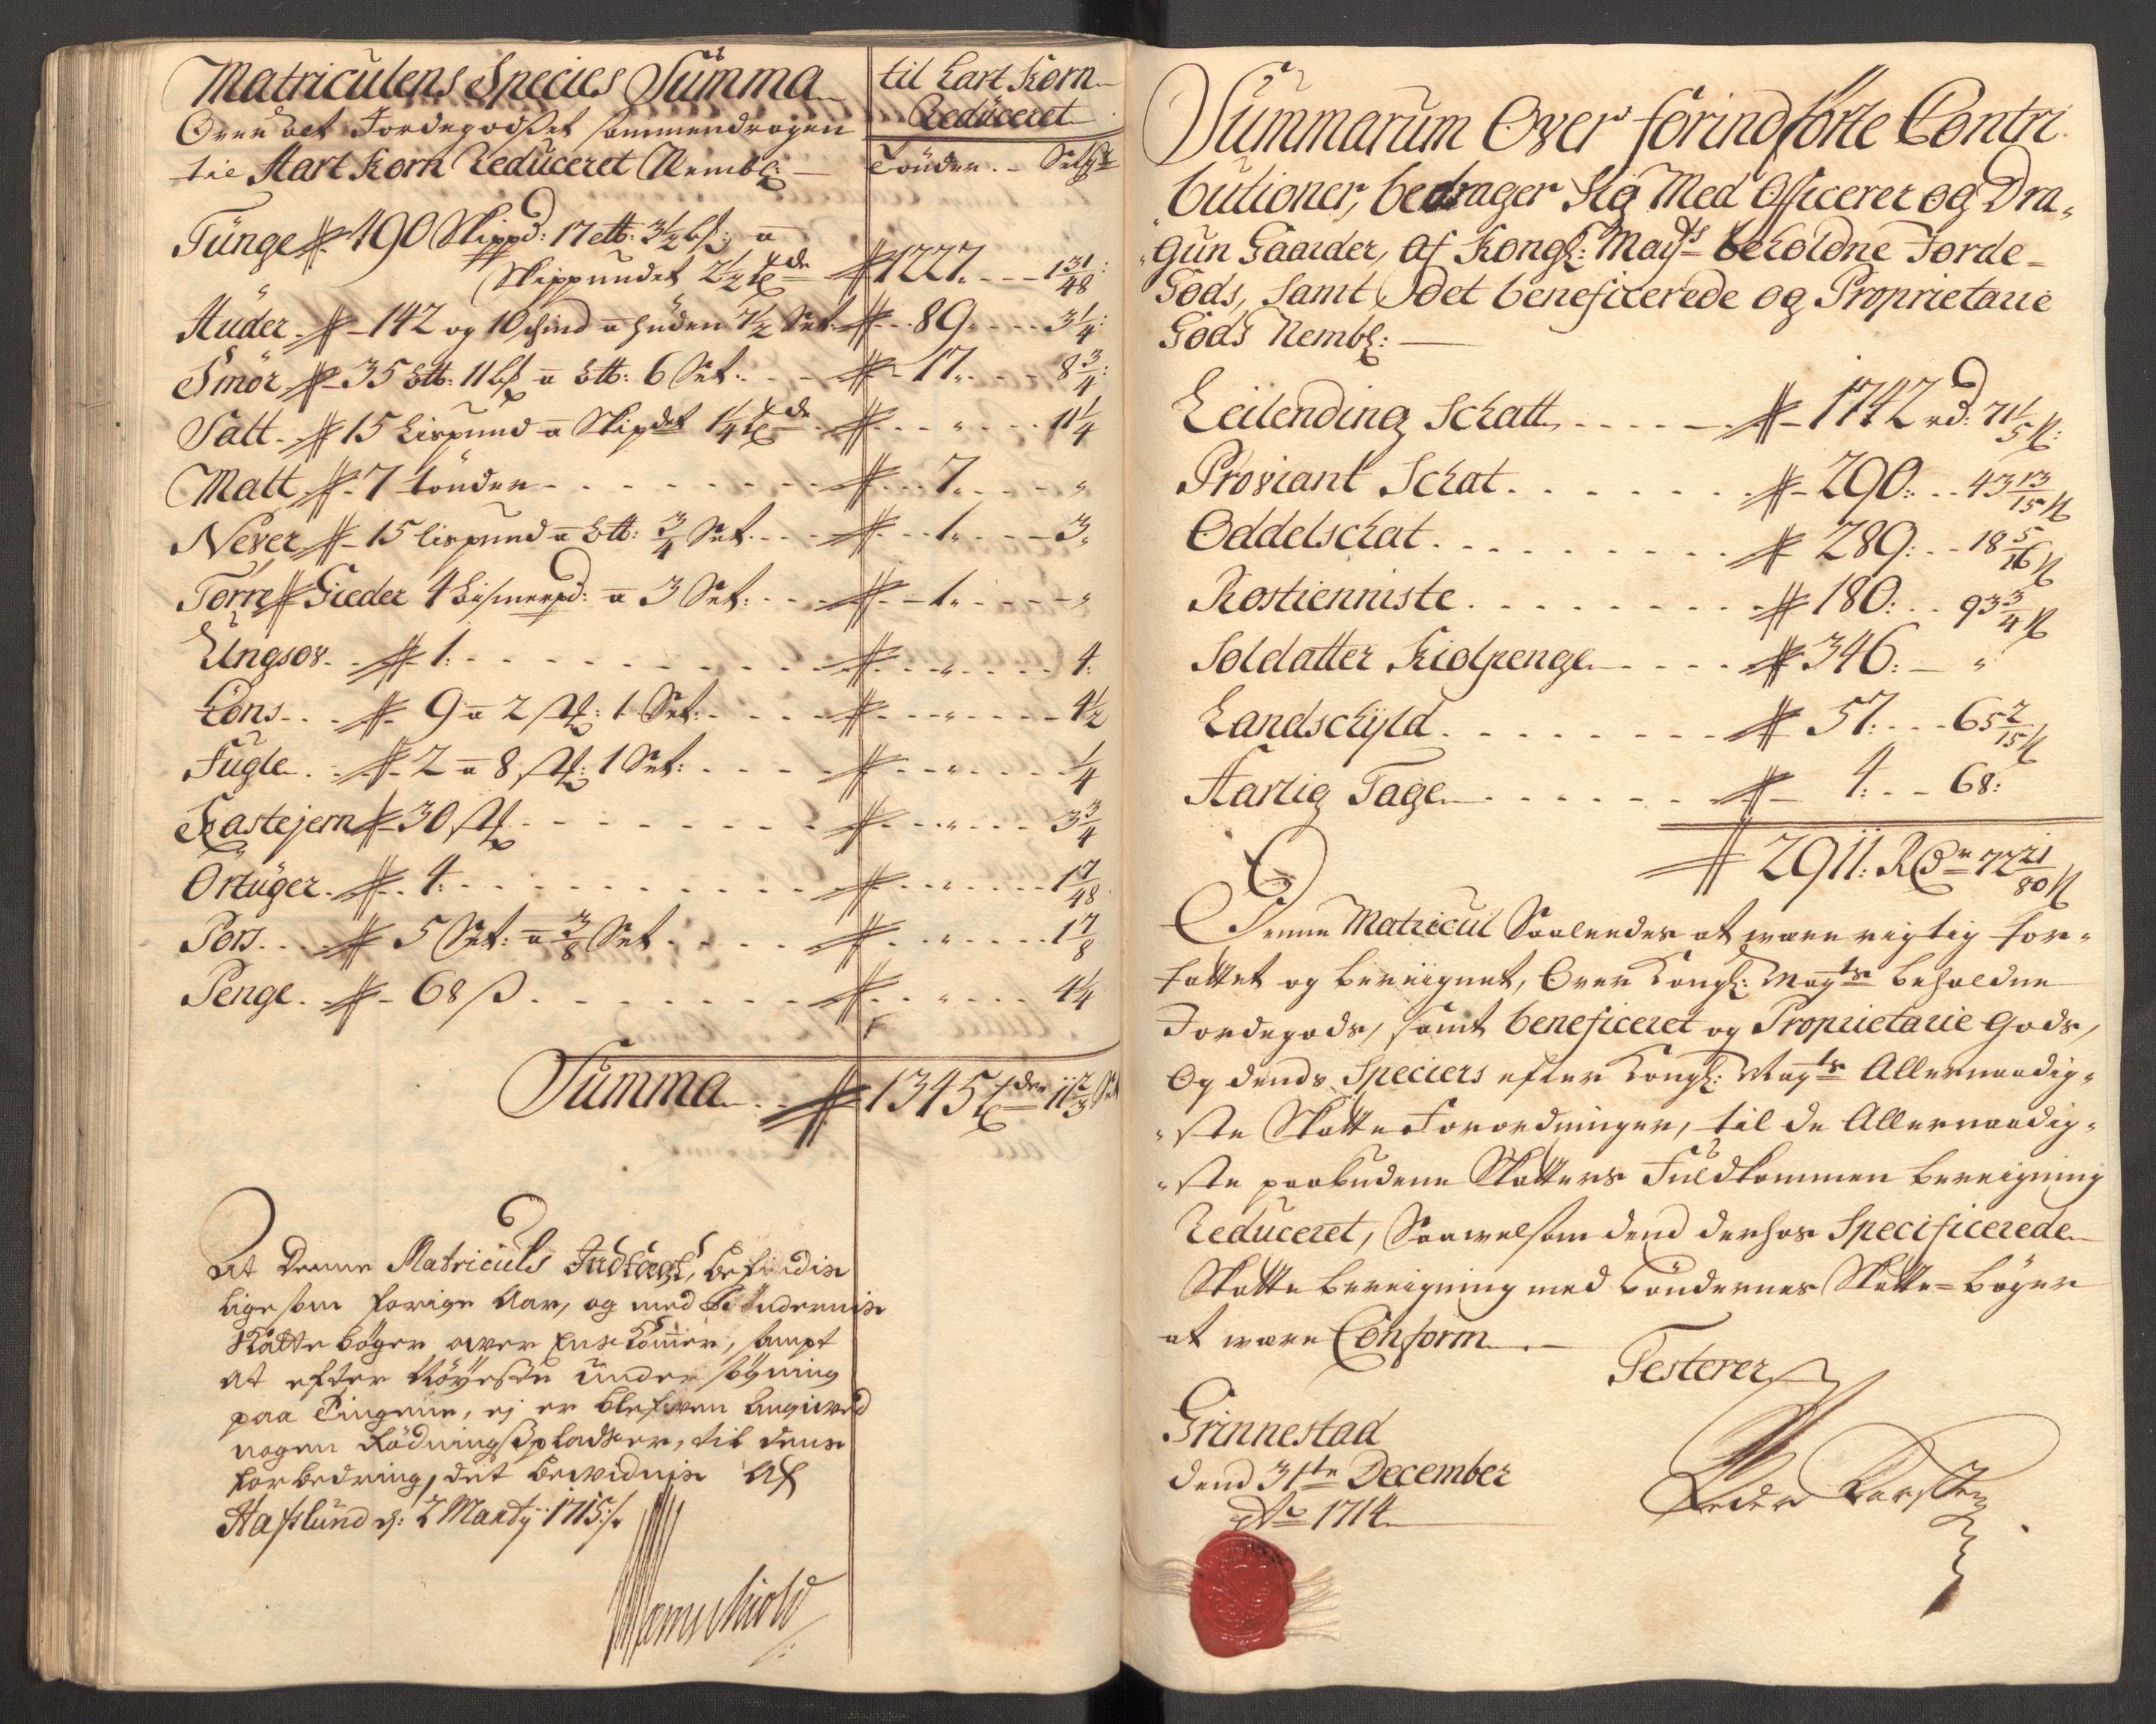 Matriculens Species Summa
Over alt Jordegodset sammendragen
til Hart Korn Reduceret Nembl:
til Hart Korn
Reduceret
Tönder. Set:
Tunge # 490 Skippd: 17 ett: 3½ a
Skippundet 2½ # 1227. - - - 1 31/48:
Huder. # 142 og 10 skind a huden 7½ Set. # 89. - - - 3¼:
Smör # 35 Ltt: 11 a Ltt: 6 Set. - - # 17. - - - 8¾:
Salt. # 15 Lispund a Skipdet 1¼ # - - " - - - 11¼
Malt # 7 tönder - - - - - # 7. - - - "
Never # 15 lispund a Ltt: ¾ Set. - - - # 1. - - - 3.
Törre # Gieder 4 bismerpd: a 3 Set: - - - # 1. - - - "
Ungsov. - # 1: - - - - - # " - - - 4.
Höns. - # 9 a 2 st: 1 Set: - - - - # - - " - - - 4½
Fugle. - # 2 a 8 st: 1 Set: - - - - # - - " - - - ¼
Kastejern # 30 st - - - - - # - - " - - - 3¾
Örtuger. # 4. - - - - - # - - " - - - 1 7/48
Pors. - - # 5 Set: a 3/8 Set. - - - # - - " - - - 1 7/8
Penge. - # 68 ß. - - - - # - - " - - - 4¼
Summa. - # 1345 tder 11 2/3 Set
At denne Matriculs Indtægt, befindis
lige som forige Aar, og med Böndernis
Skatte böger over Ens kommer, sampt
at efter Nöyeste undersögning
paa Tingene, ej er blefven angived
nogen Rödningspladser, til dens
forbedring, det bevidnis af
Hafslund d: 2 Marty 1715 /.
Summarum Over forindförte Contri
butioner, bedrager Sig Med Officerer og Dra„
„gun Gaarder, af Kongl: Mayts beholdne Jorde-
Gods, Samt Det beneficerede og Proprietarie
Gods Nembl:
Leilending Schatt. - - - - # 1742 rd: 71 1/5 ß:
Proviant Schat. - - - - # 290: - - 43 13/15 ß
Oddelschat. - - - - # 289: - - 18 5/16 ß
Rostienniste. - - - - # 180: - - 93 3/4 ß
Soldatter Kiolpenge. - - - # 346: - "
Landschyld. - - - - # 57: - - 65 2/15 ß
Hartig Tage. - - - - # 4: - - 68:
# 2911: Rdr 72 21/80 ß
Denne Matricul Saaledes at være rigtig for„
fattet og bereignet, Over Kongl: Mayts beholdne
Jordegods, samt beneficeret og Proprietarie Gods,
Og dends Speciers efter Kongl: Mayts Allernaadig„
„ste Skatte Forordninger, til de Allernaadig„
„ste paabudene Skatters Fuldkommen bereigning
Reduceret, Saavelsom dend derhos Specificerede
Skatte bereigning med böndernes Skatte-böger
at være Conform.
Testerer
Grinnestad
dend 31te December
Ao 1714.
Peder Karsten